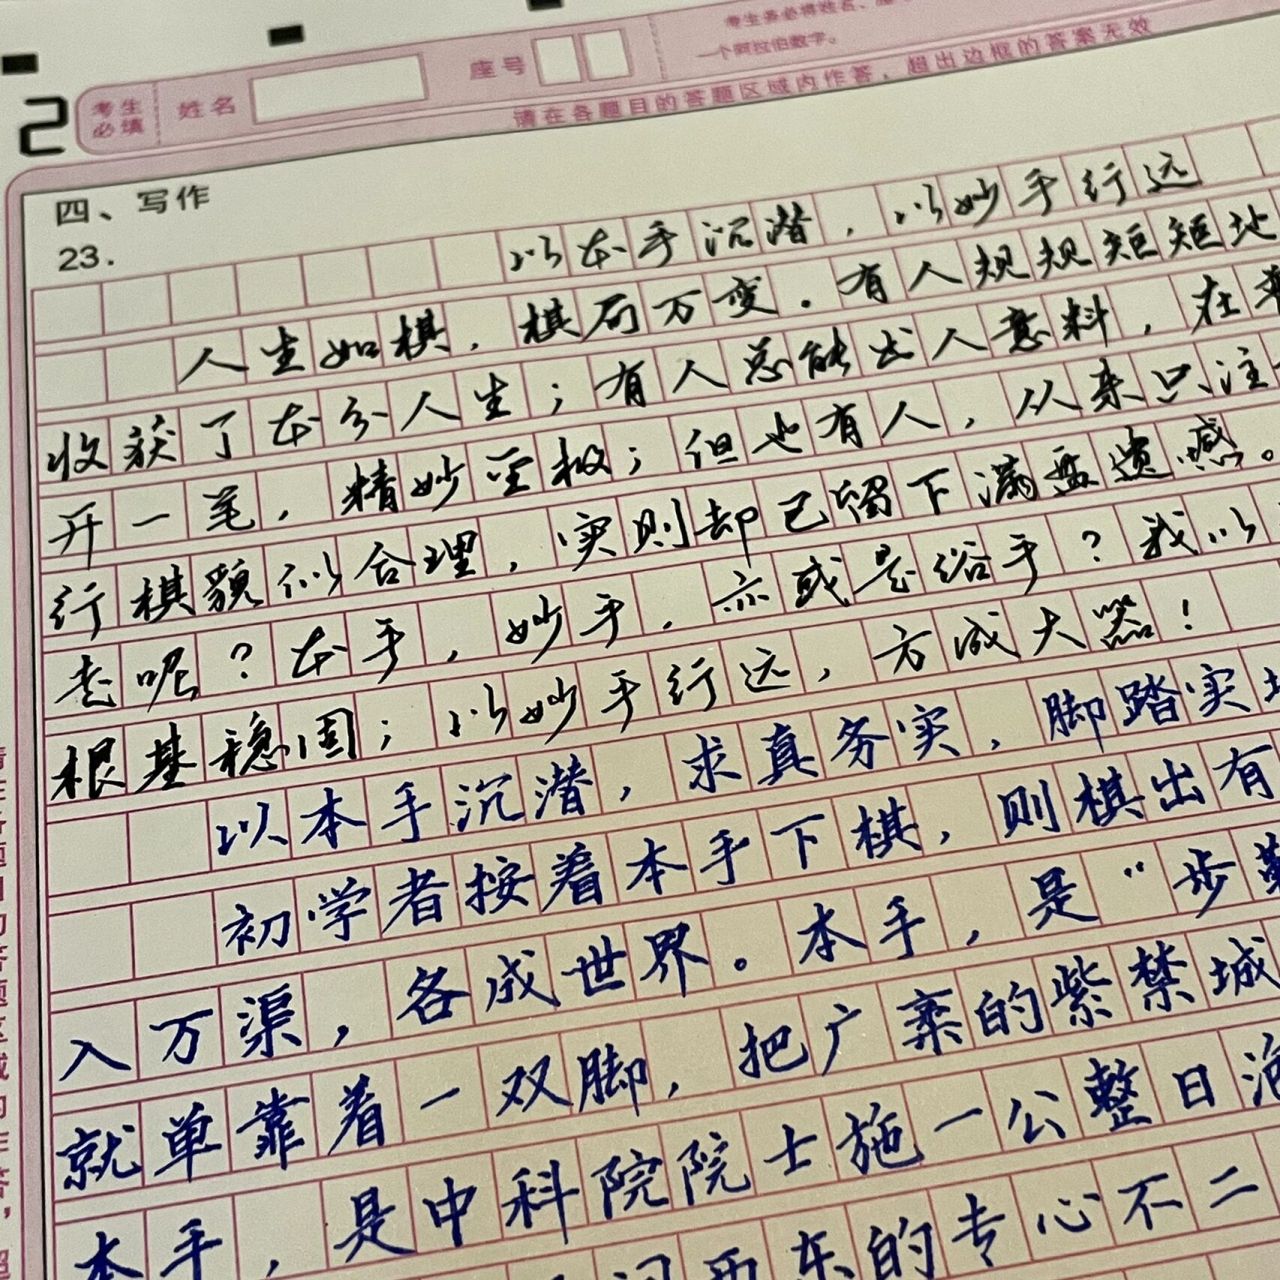 考生务必将姓名、座
一个阿拉伯数字。
2 考生必填 姓名 座号
请在各题目的答题区域内作答，超出边框的答案无效
四、写作
23.
以本手沉潜，以妙手行远
人生如棋，棋局万变。有人规规矩矩地
收获了本分人生；有人总能出人意料，在
开一笔，精妙至极；但也有人，从来只注
行棋貌似合理，实则却已留下满盘遗憾。
走呢？本手，妙手，亦或是俗手？我以
根基稳固；以妙手行远，方成大器！
以本手沉潜，求真务实，脚踏实地
初学者按着本手下棋，则棋出有
入万渠，各成世界。本手，是“步
就单靠着一双脚，把广袤的紫禁城
本手，是中科院院士施一公整日泡
的专心不二